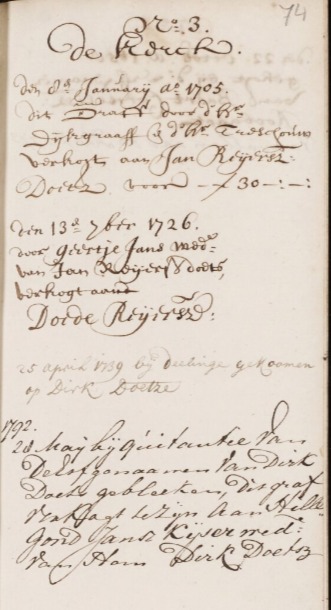 74
N:o 3.
de Kerck.
den 8e January ao 1705.
dit Graft door d'hr.
Dijkgraaff & d'hr. Treschouw
verkogt aan Jan Reijersz:
Doets voor — f 30 —:—:
den 13e 7ber 1726.
door Geertje Jans wede:
van Jan Reijersz doets,
verkogt aan
Doede Reijersz:
25 april 1739 bij deelinge gekoomen
op Dirk Doetze
1792.
28 Maij bij quitantie van
De Erfgenaamen van Dirk
Doets gebleeken, dit graf
verkogt te zijn aan
Jansz Kijser wed:
van Dirk Doetsz